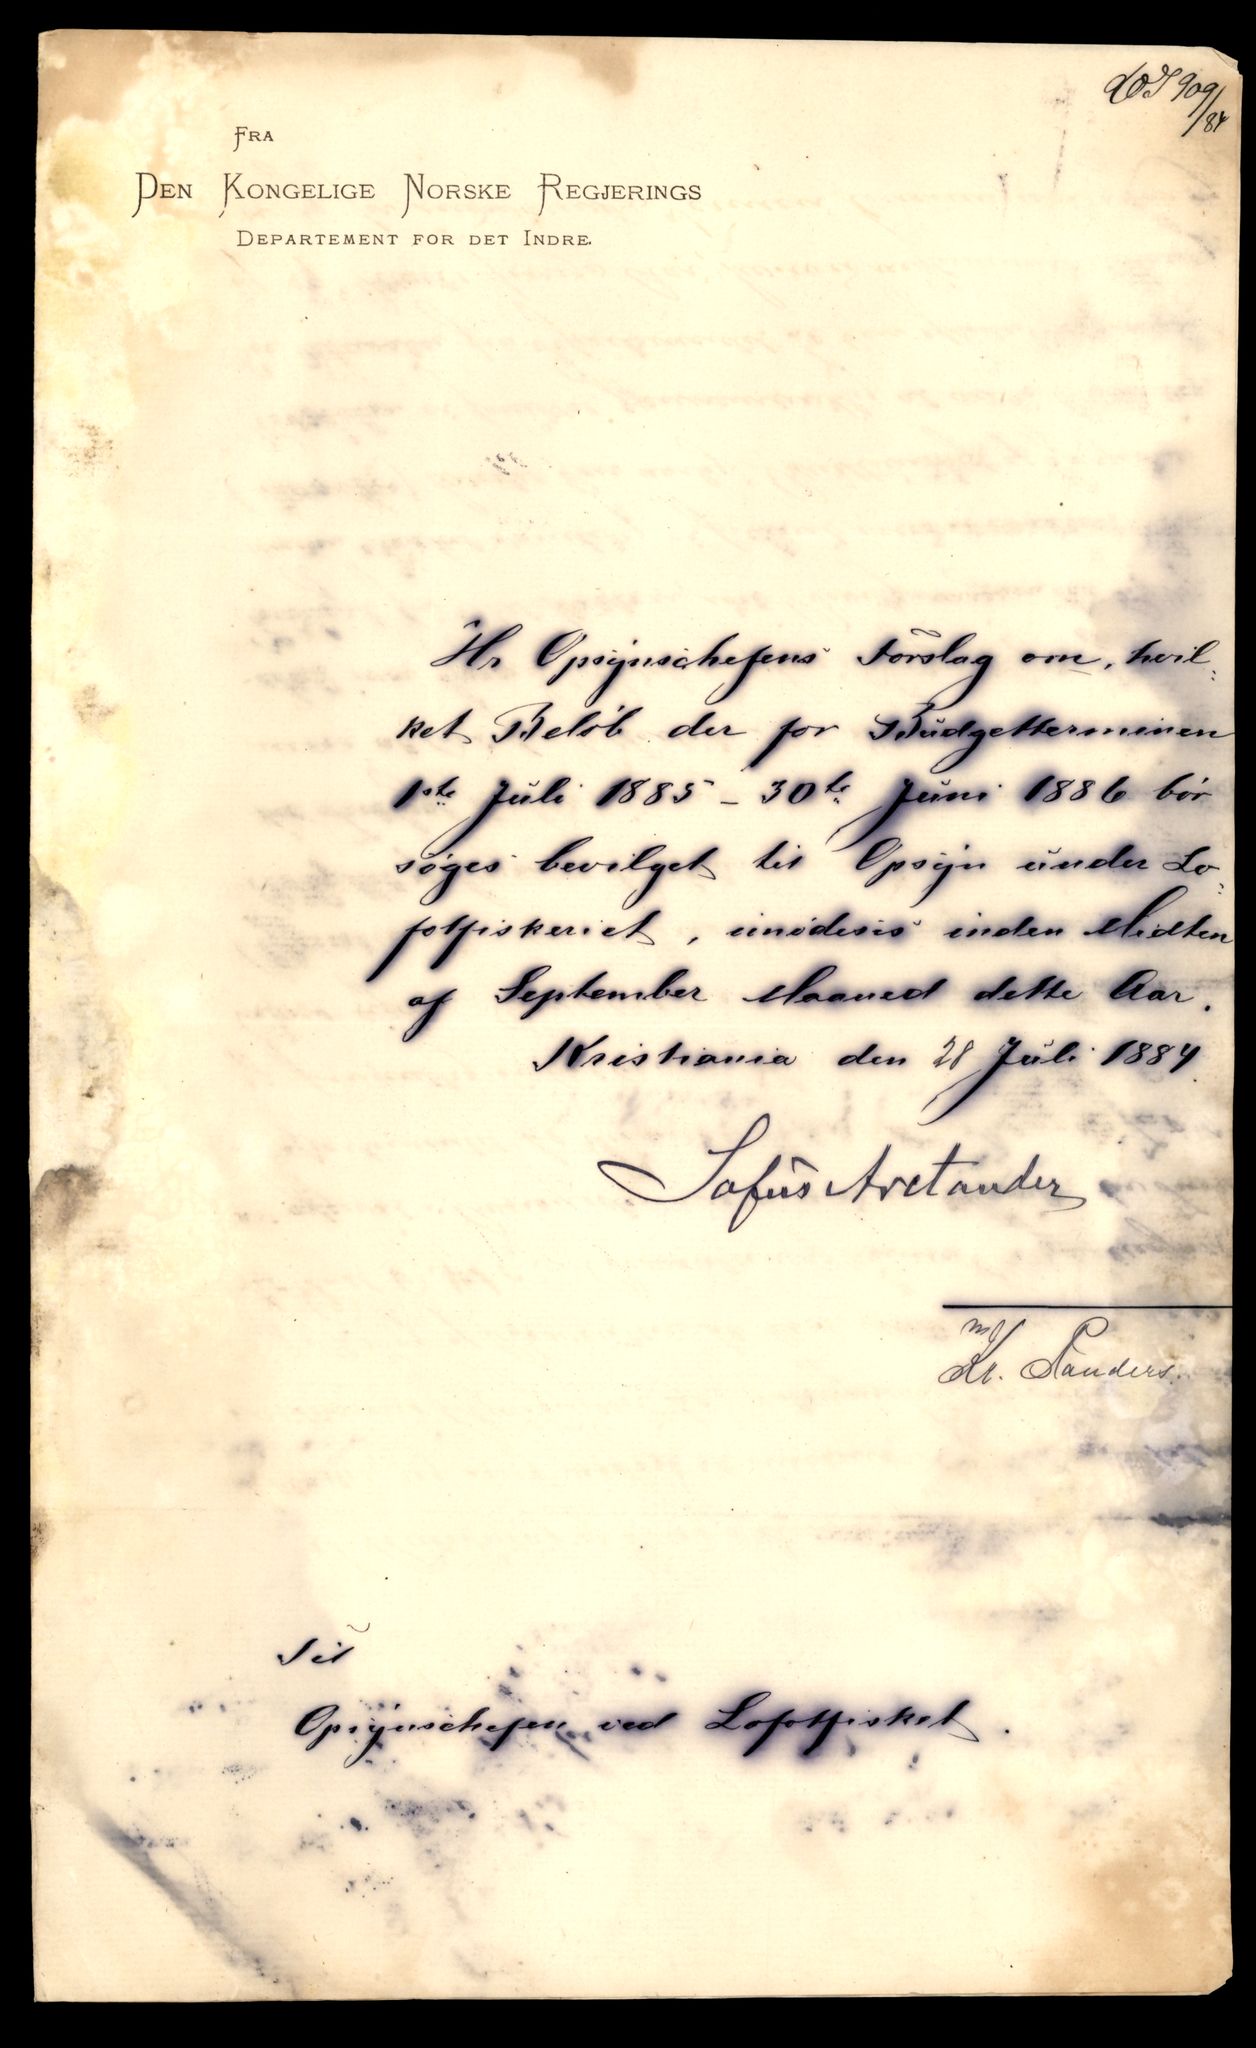 909/84
FRA
DEN KONGELIGE NORSKE REGJERINGS
DEPARTEMENT FOR DET INDRE.
Hr Opsynschefens Forslag om, hvil-
ket Beløb der for Budgetterminen
1ste Juli 1885 – 30te Juni 1886 bør
søges bevilget til Opsyn under Lo-
fotfiskeriet, imødesees inden Midten
af September Maaned dette Aar.
Kristiania den 28 Juli 1884
Sofus Arctander
Kr. Sanders.
Til
Opsynschefen ved Lofotfisket.